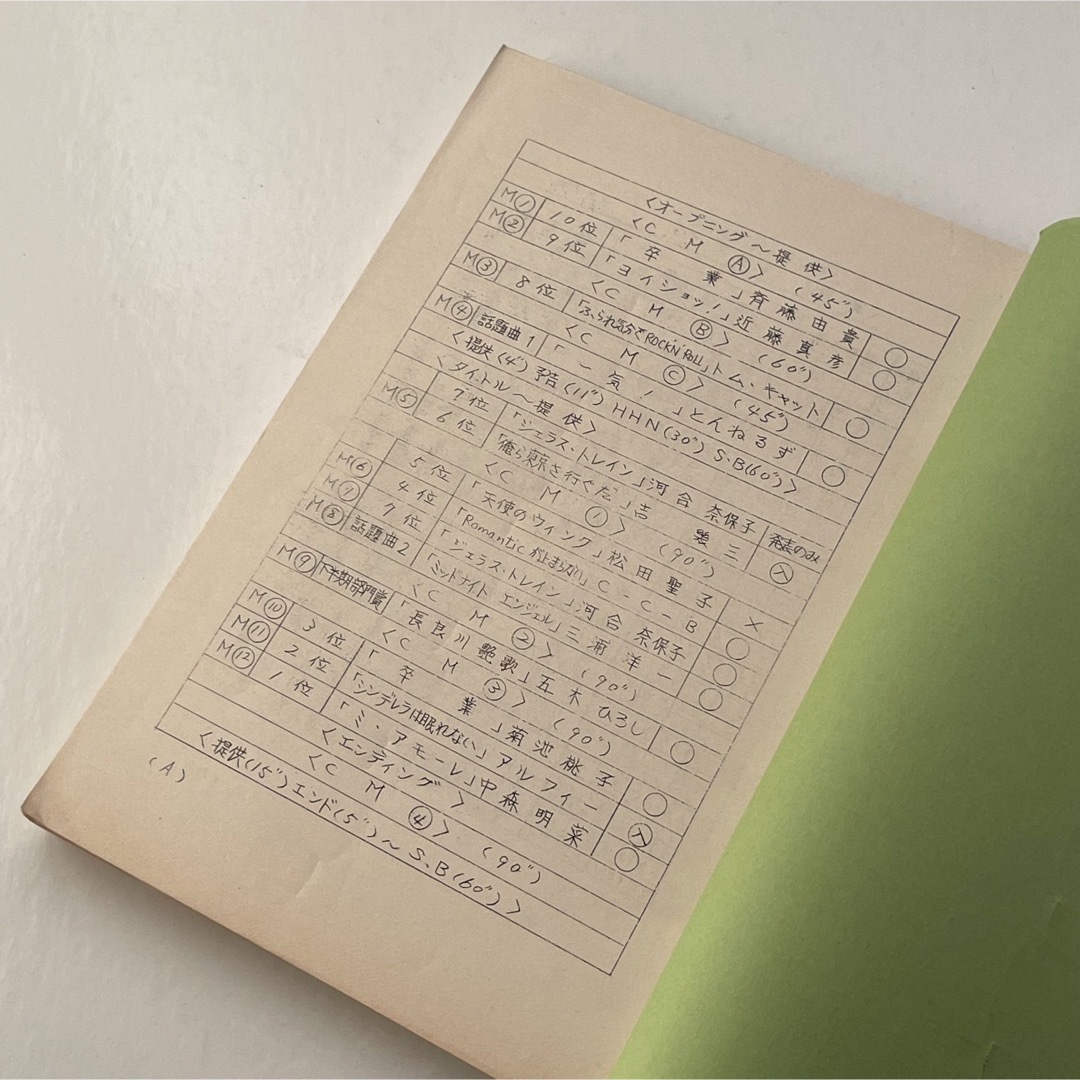 〈オープニング～提供〉
〈C M Ⓐ〉 (45")
M① 10位 「卒業」斉藤由貴 ○
M② 9位 「ヨイショッ!」近藤真彦 ○
〈C M Ⓑ〉 (60")
M③ 8位 「ふられ気分でROCK'N'ROLL」トム・キャット ○
〈C M Ⓒ〉 (45")
M④ 話題曲1 「一気!」とんねるず ○
〈提供(4") 予告(11") HHN(30") S.B(60")〉
〈タイトル～提供〉
M⑤ 7位 「ジェラス・トレイン」河合奈保子 発表のみ
6位 「俺ら東京さ行ぐだ」吉幾三 Ⓧ
〈C M ①〉 (90")
M⑥ 5位 「天使のウィンク」松田聖子 ×
M⑦ 4位 「Romanticが止まらない」C-C-B ○
M⑧ 7位 「ジェラス・トレイン」河合奈保子 ○
話題曲2 「ミッドナイト エンジェル」三浦洋一 ○
〈C M ②〉 (90")
M⑨ 下半期部門賞 「長良川艶歌」五木ひろし ○
〈C M ③〉 (90")
M⑩ 3位 「卒業」菊池桃子 ○
M⑪ 2位 「シンデレラは眠れない」アルフィー Ⓧ
M⑫ 1位 「ミ・アモーレ」中森明菜 ○
〈エンディング〉
〈C M ④〉 (90")
〈提供(15") エンド(5")～S.B(60")〉
(A)